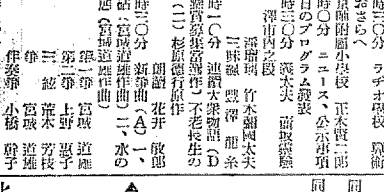 時三〇分 ラヂオ學校 算術
おさらへ
京師附屬小學校 正木賢二郎
時〇分 ニュース、公示事項
日のプログラム發表
時三〇分 義太夫 壺坂靈驗
澤市内之段
淨瑠璃 竹本 國太夫
三味線 豐澤 龍糸
時一〇分 連續大衆物語(D
懸賞募集當籤作)不老長生の
(二)杉原德行原作
朗讀 花井 敏郎
時三〇分 新箏曲(A)一、
話(宮城道雄作曲)二、水の
(宮城道雄作曲)
第一箏 宮城 道雄
第二箏 上野 惠子
三絃 荒木 芳枝
箏 宮城 道雄
伴奏箏 小橋 幹子
同
同